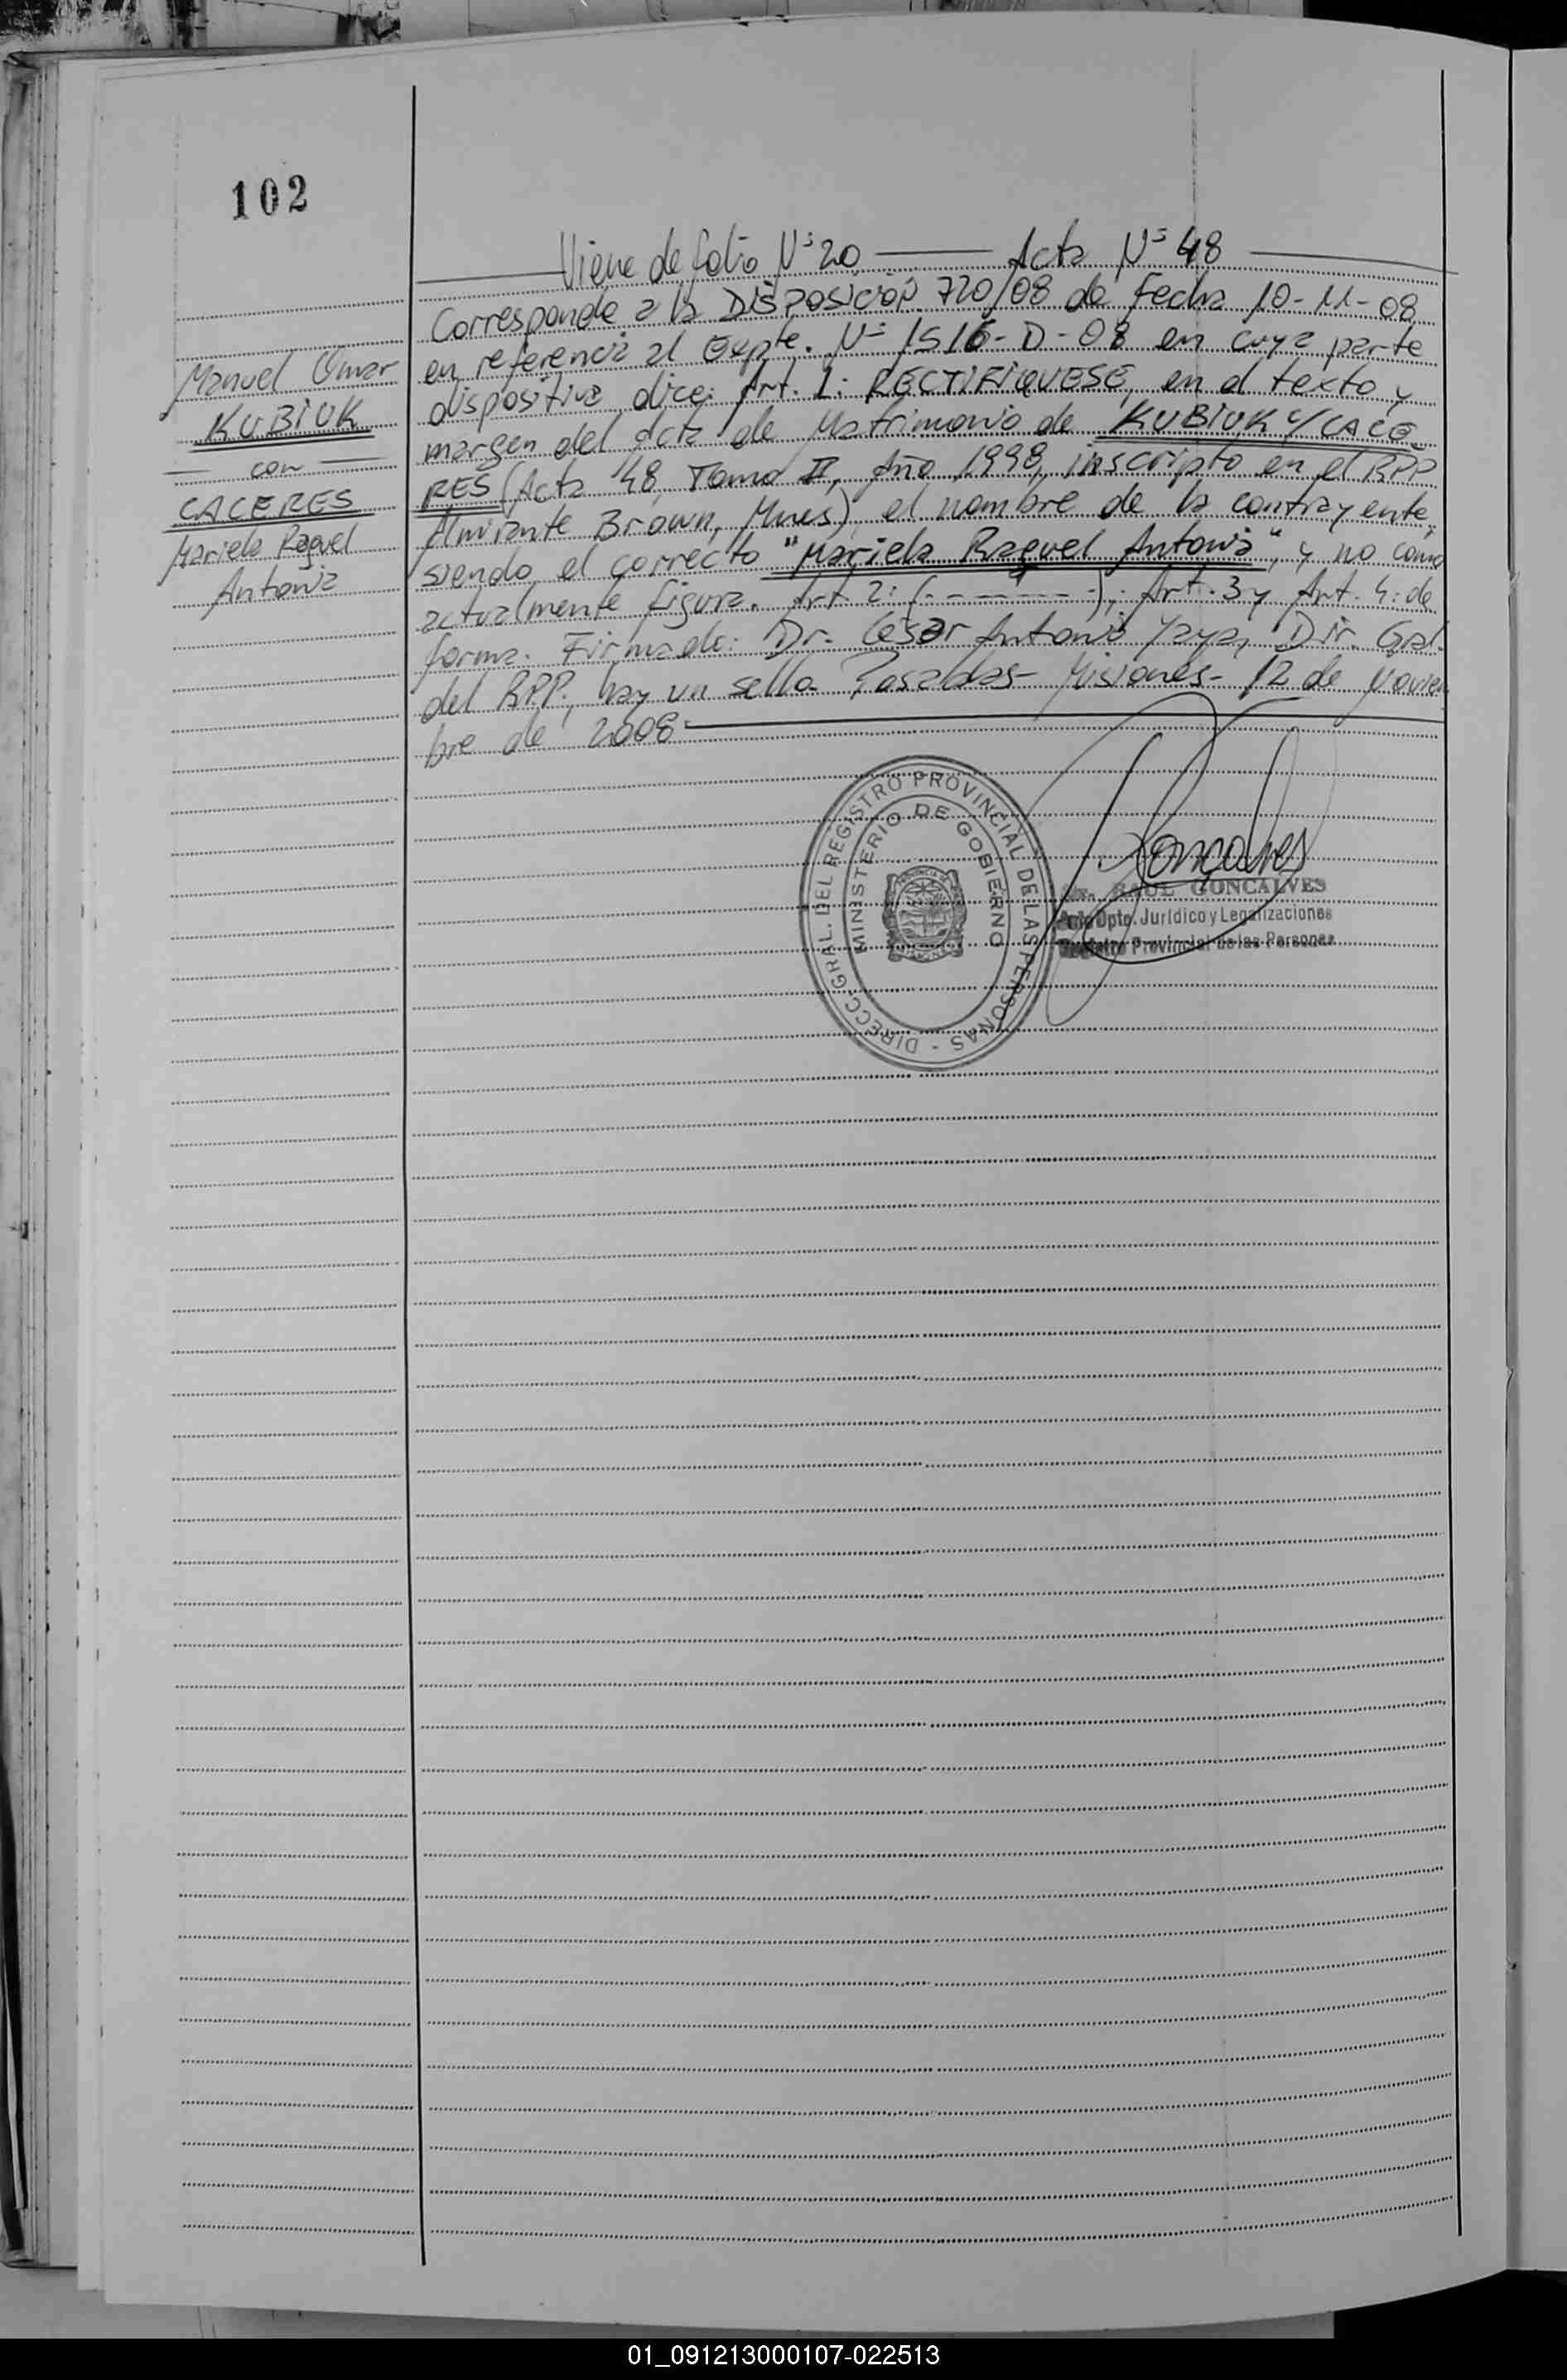 102
Viene de folio Nº 20 —— Acta Nº 48 ——
Corresponde a la DISPOSICIÓN 720/08 de Fecha 10-11-08
en referencia al Expte. Nº 1516-D-08 en cuya parte
dispositiva dice: Art. 1: RECTIFIQUESE, en el texto y
margen del Acta de Matrimonio de KUBIUK C/ CACE
RES (Acta 48, Tomo II, Año 1998, inscripto en el RPP
Almirante Brown, Mnes), el nombre de la contrayente,
siendo el correcto "Mariela Raquel Antonia", y no como
actualmente figura. Art. 2: (- - - - - - -); Art. 3 y Art. 4: de
forma. Firmado: Dr. César Antonio Yaya, Dir. Gral.
del RPP; hay un sello Posadas- Misiones- 12 de Noviem
bre de 2008
Manuel Omar
KUBIUK
— con —
CACERES
Mariela Raquel
Antonia
DIRECC. GRAL. DEL REGISTRO PROVINCIAL DE LAS PERSONAS -
MINISTERIO DE GOBIERNO
Goncalves
RAUL GONCALVES
Dpto. Jurídico y Legalizaciones
Registro Provincial de las Personas
01_091213000107-022513